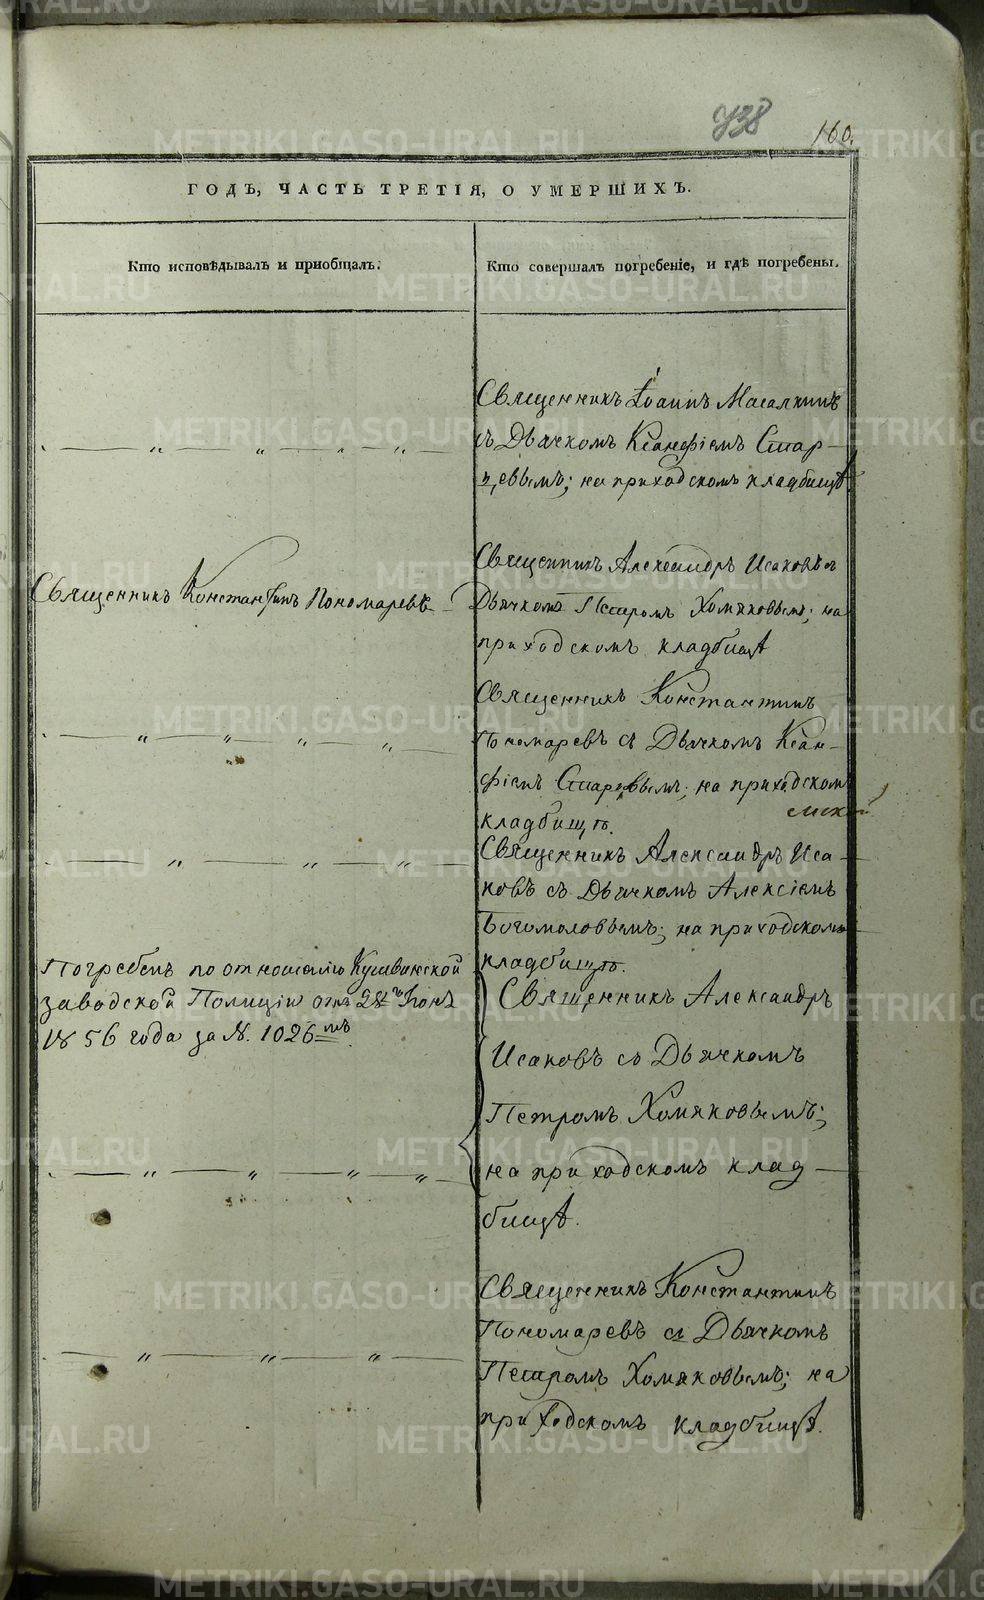 738
160.
ГОДЪ, ЧАСТЬ ТРЕТІЯ, О УМЕРШИХЪ.
Кто исповѣдывалъ и приобщалъ.
Кто совершалъ погребеніе, и гдѣ погребены.
Священникъ Іоаннъ Масалкинъ
съ Дьячкомъ Ксанфіемъ Стар-
цевымъ; на приходскомъ кладбищѣ.
Священникъ Константинъ Пономаревъ
Священникъ Александръ Исаковъ съ
Дьячкомъ Петромъ Хомяковымъ; на
приходскомъ кладбищѣ
Священникъ Константинъ
Пономаревъ съ Дьячкомъ Ксан-
фіемъ Старцевымъ; на приходскомъ
кладбищѣ.
Священникъ Александръ Иса-
ковъ съ Дьячкомъ Алексіемъ
Богомоловымъ; на приходскомъ
кладбищѣ.
Погребенъ по отношенію Кушвинской
заводской Полиціи отъ 28го Іюня
1856 года за №. 1026мъ.
Священникъ Александръ
Исаковъ съ Дьячкомъ
Петромъ Хомяковымъ;
на приходскомъ клад-
бищѣ.
Священникъ Константинъ
Пономаревъ съ Дьячкомъ
Петромъ Хомяковымъ; на
приходскомъ кладбищѣ.
METRIKI.GASO-URAL.RU